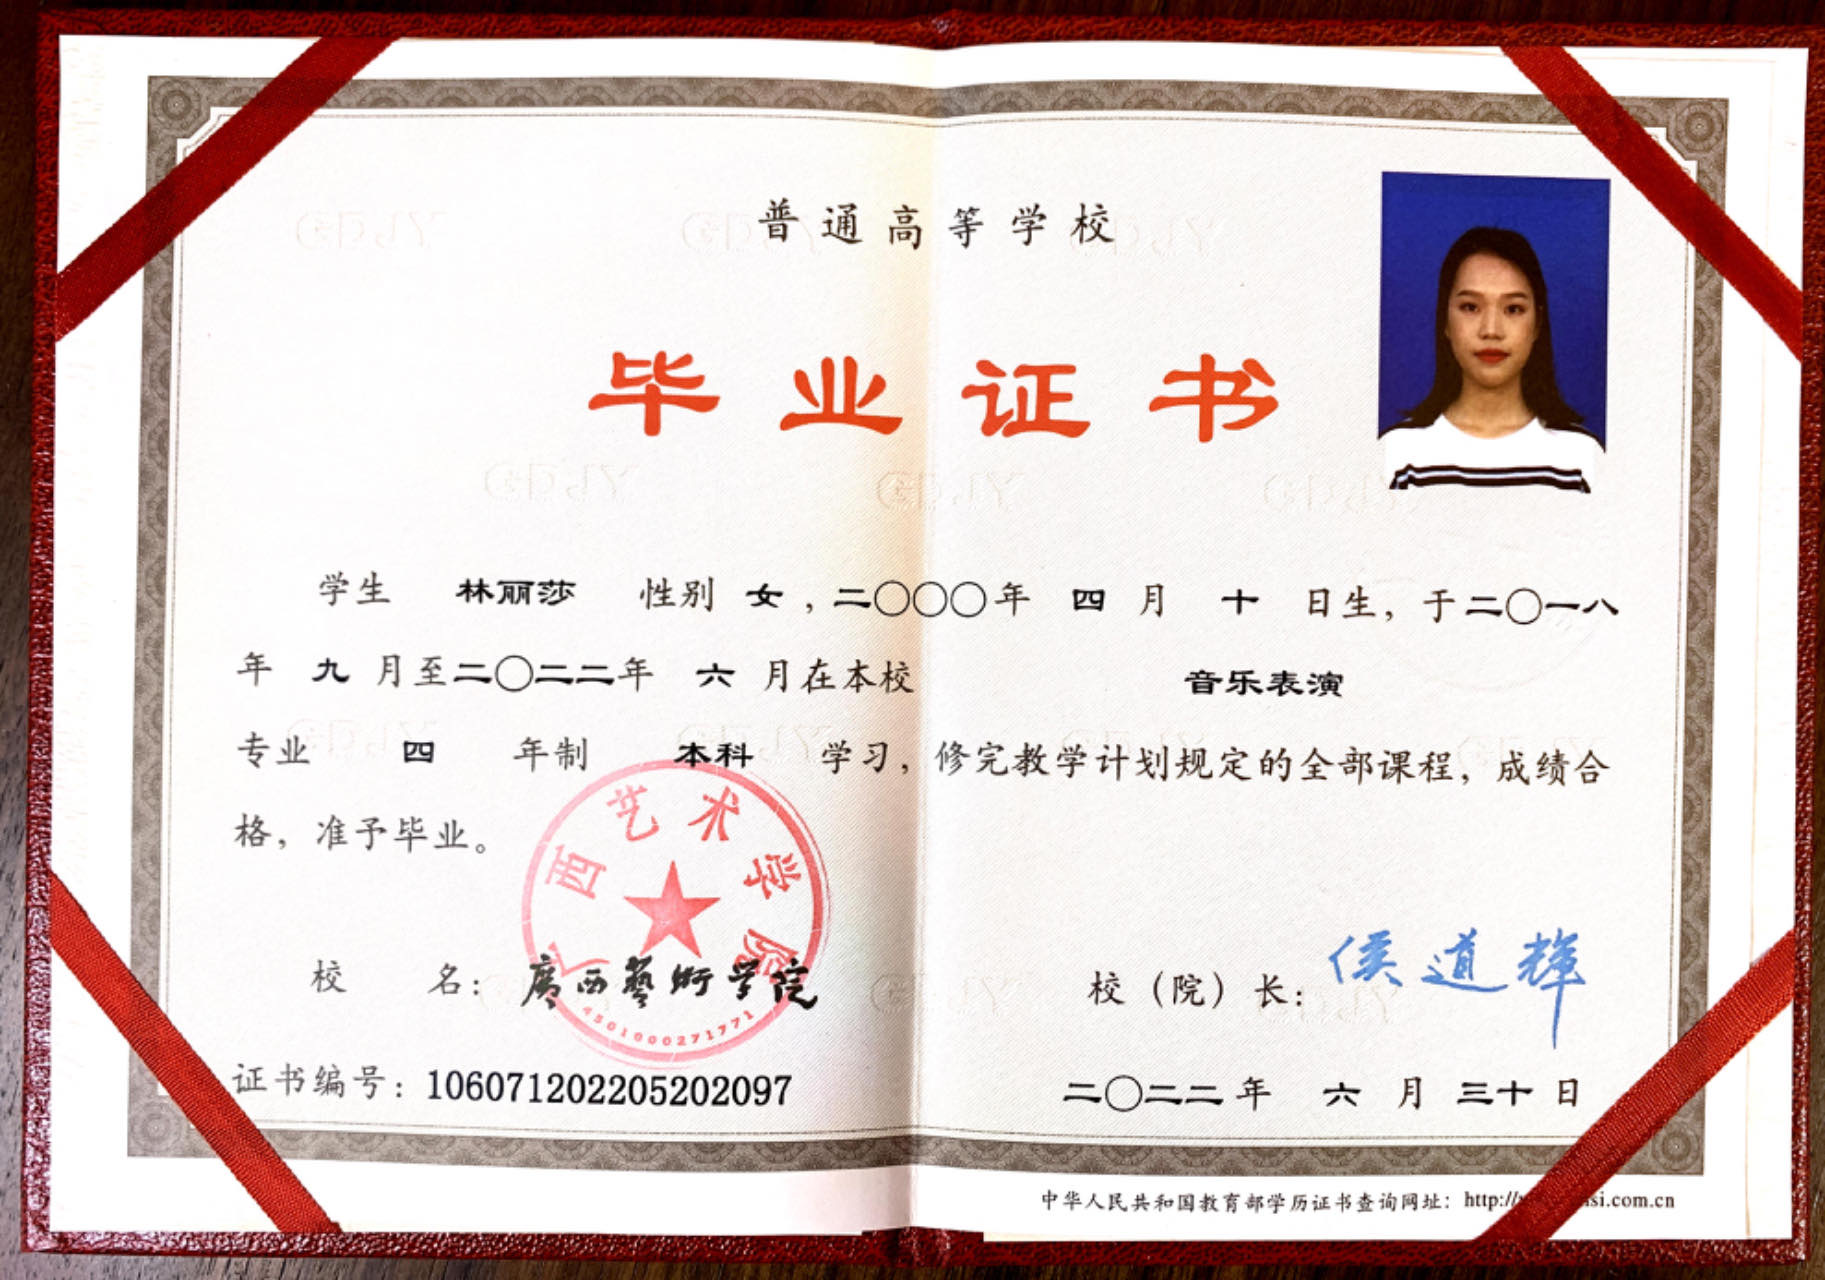 普通高等学校
毕业证书
学生 林丽莎 性别 女，二〇〇〇年 四 月 十 日生，于二〇一八
年 九 月至二〇二二年 六 月在本校 音乐表演
专业 四 年制 本科 学习，修完教学计划规定的全部课程，成绩合
格，准予毕业。
广西艺术学院
4501000271771
校 名：廣西藝術学院
校（院）长：侯道辉
证书编号：106071202205202097
二〇二二年 六 月 三十 日
中华人民共和国教育部学历证书查询网址：http:// si.com.cn